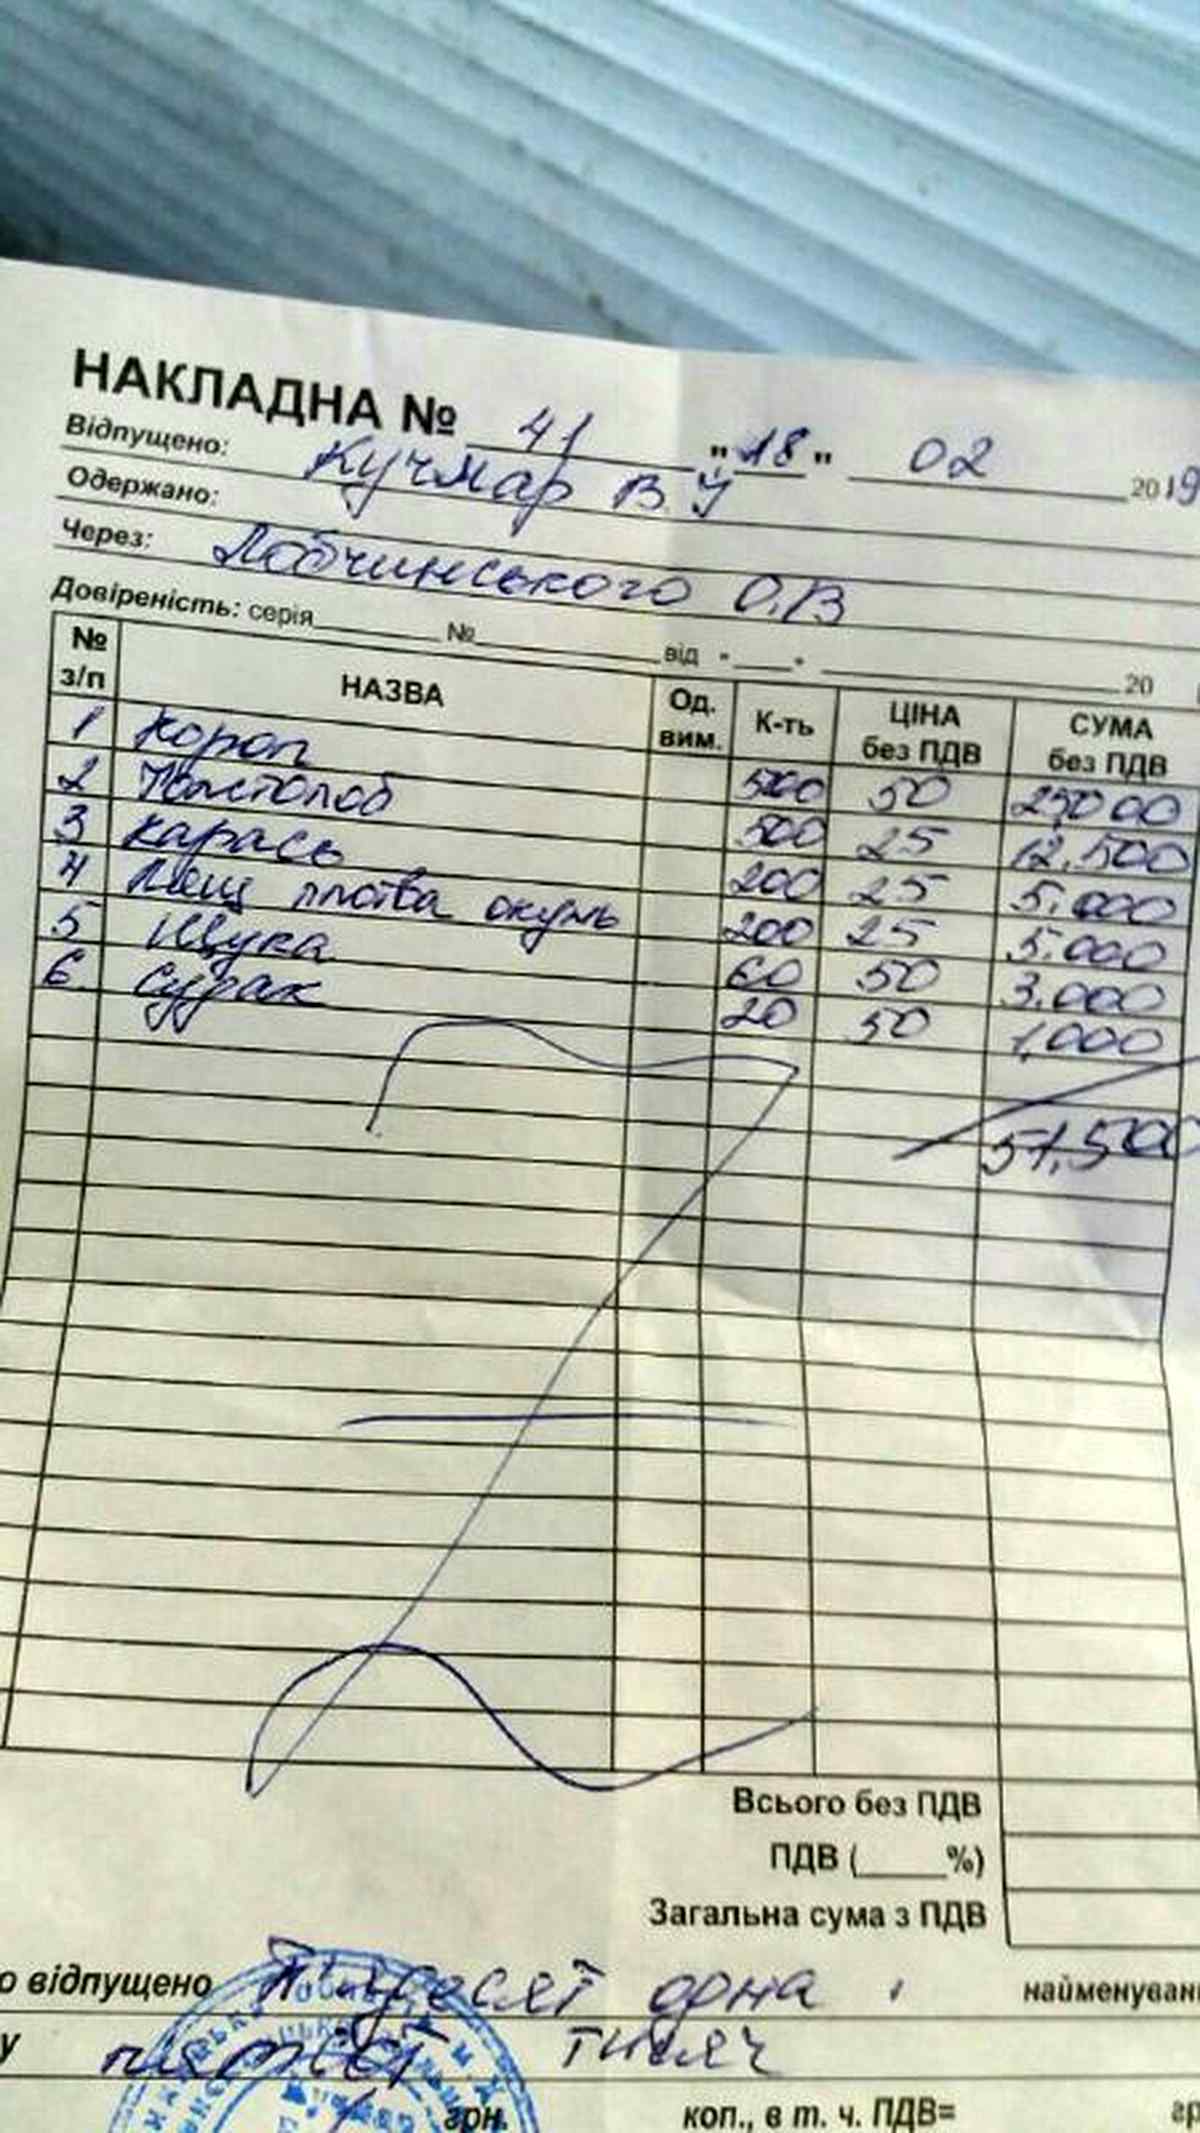 НАКЛАДНА № 41 "18" 02 2019
Відпущено: Кучмар В У
Одержано:
Через: Лобчинського О.В
Довіреність: серія № від " " 20
№ з/п НАЗВА Од. вим. К-ть ЦІНА без ПДВ СУМА без ПДВ
1 Короп 500 50 25000
2 Товстолоб 500 25 12.500
3 Карась 200 25 5.000
4 Лящ плотва окунь 200 25 5.000
5 Щука 60 50 3.000
6 Судак 20 50 1,000
51,500
Всього без ПДВ
ПДВ ( %)
Загальна сума з ПДВ
о відпущено П'ядесят одна найменуван
у пятсот тисяч
грн. коп., в т. ч. ПДВ= гр